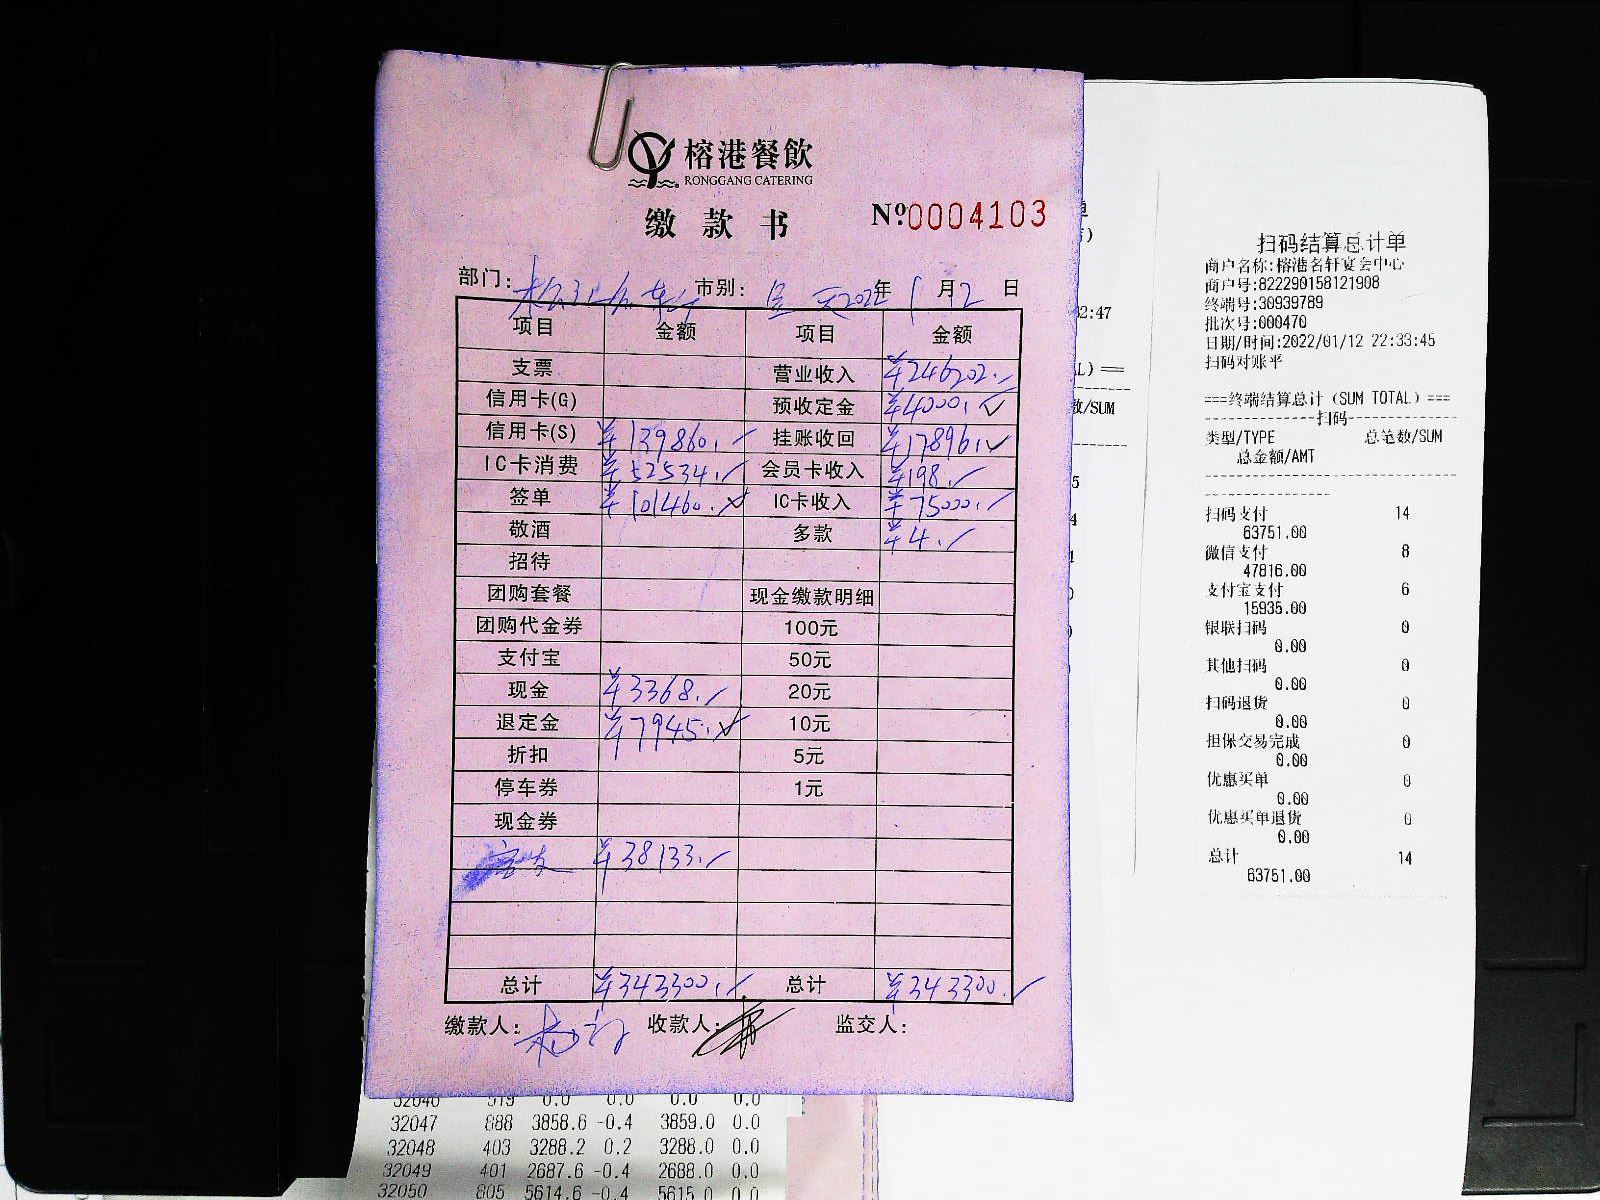 榕港餐飲
RONGGANG CATERING
缴款书 №0004103
部门: 市别: 2022年1月2日
项目 金额 项目 金额
支票 营业收入 ¥246202.
信用卡(G) 预收定金 ¥4000.
信用卡(S) ¥139860. 挂账收回 ¥17896.
IC卡消费 ¥52534. 会员卡收入 ¥198.
签单 ¥101460. IC卡收入 ¥75000.
敬酒 多款 ¥4.
招待
团购套餐 现金缴款明细
团购代金券 100元
支付宝 50元
现金 ¥3368. 20元
退定金 ¥7945. 10元
折扣 5元
停车券 1元
现金券
¥38133.
总计 ¥343300. 总计 ¥343300.
缴款人: 收款人: 监交人:
32046 519 0.0 0.0 0.0 0.0
32047 888 3858.6 -0.4 3859.0 0.0
32048 403 3288.2 0.2 3288.0 0.0
32049 401 2687.6 -0.4 2688.0 0.0
32050 805 5614.6 -0.4 5615.0 0.0
2:47
L)===
数/SUM
扫码结算总计单
商户名称:榕港名轩宴会中心
商户号:822290158121908
终端号:30939789
批次号:000470
日期/时间:2022/01/12 22:33:45
扫码对账平
===终端结算总计(SUM TOTAL)===
---扫码---
类型/TYPE 总笔数/SUM
总金额/AMT
扫码支付 14
63751.00
微信支付 8
47816.00
支付宝支付 6
15935.00
银联扫码 0
0.00
其他扫码 0
0.00
扫码退货 0
0.00
担保交易完成 0
0.00
优惠买单 0
0.00
优惠买单退货 0
0.00
总计 14
63751.00